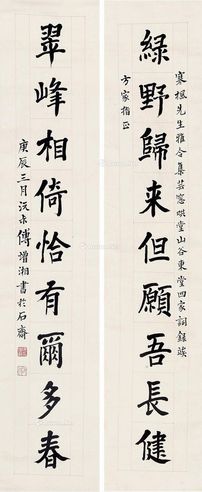 寒楓先生雅令集芸窓哄堂山谷東堂四家詞錄竢
綠野歸来但願吾長健
方家指正
翠峰相倚恰有爾多春
庚辰三月沅尗傅增湘書於石齋